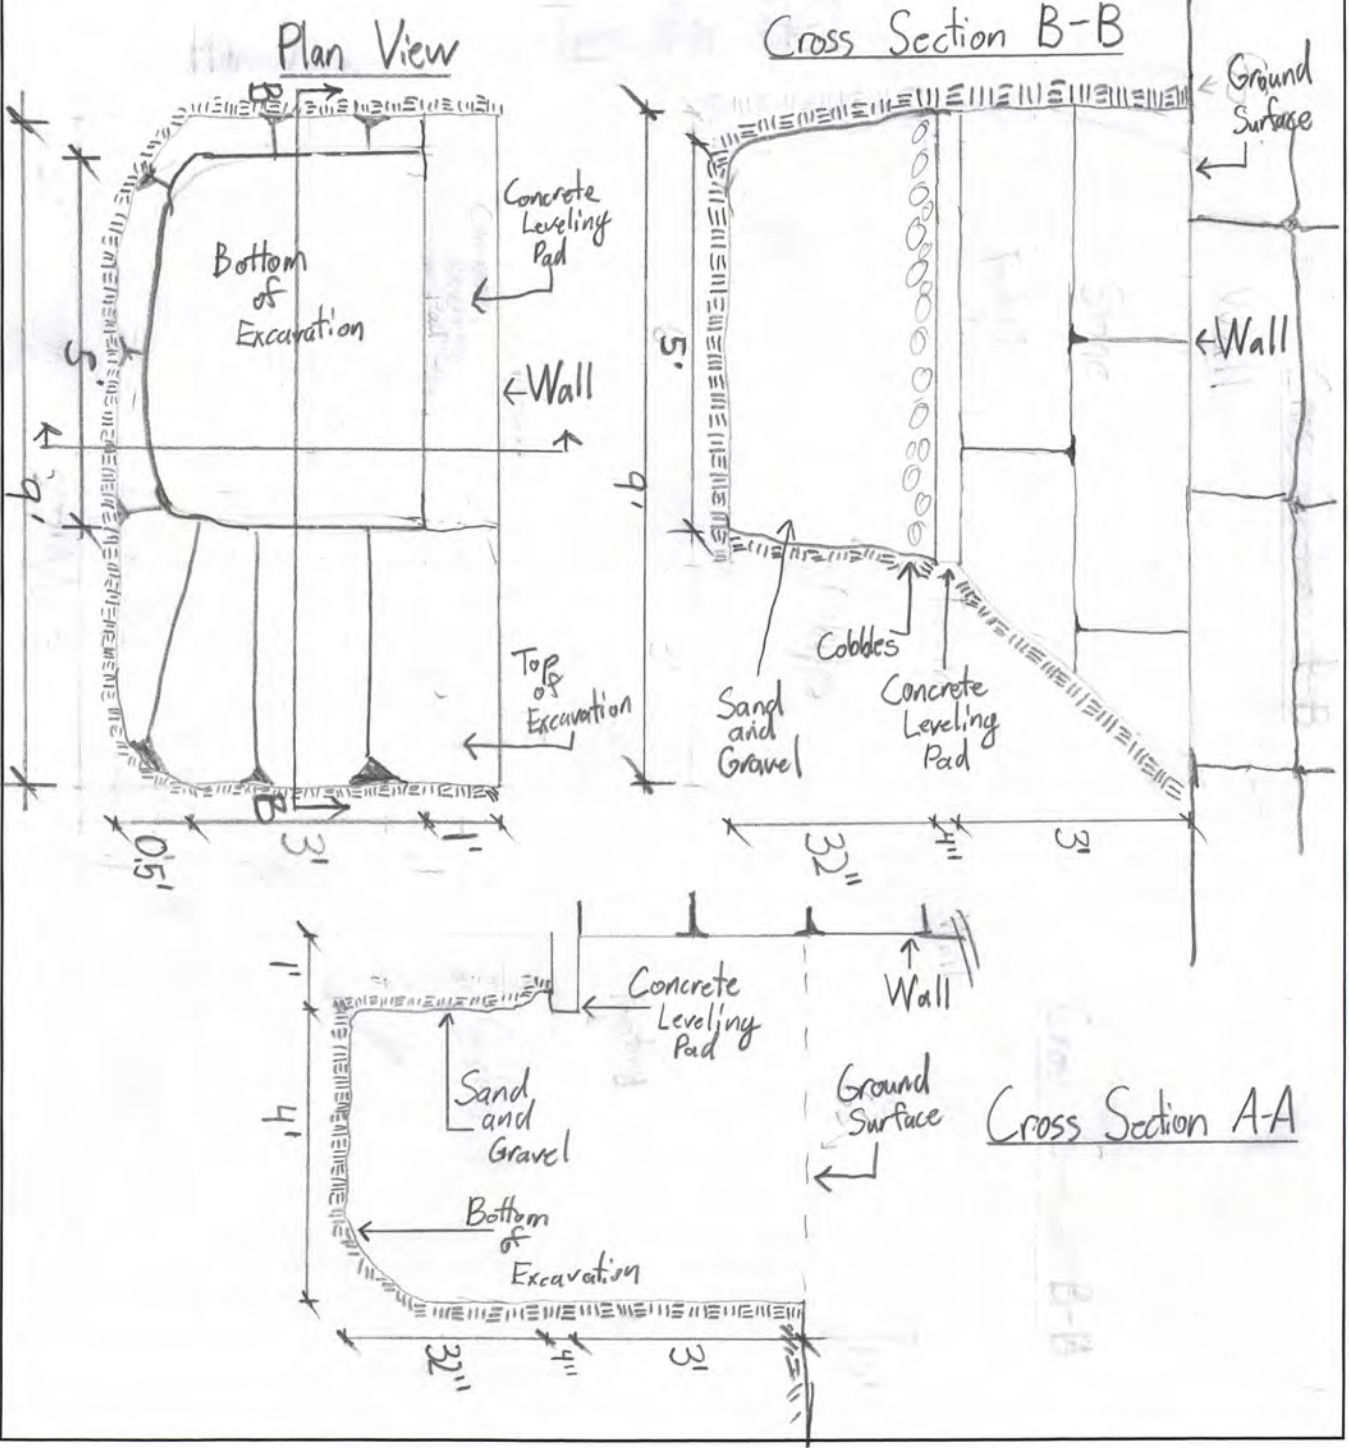 Plan View
B
Concrete
Leveling
Pad
Bottom
of
Excavation
← Wall
5'
9'
Top
of
Excavation
B
0.5'
3'
1'
Cross Section B-B
Ground
Surface
← Wall
5'
9'
Cobbles
Sand
and
Gravel
Concrete
Leveling
Pad
32"
4"
3'
1'
4'
Concrete
Leveling
Pad
Wall
Sand
and
Gravel
Ground
Surface
Bottom
of
Excavation
32"
4"
3'
Cross Section A-A